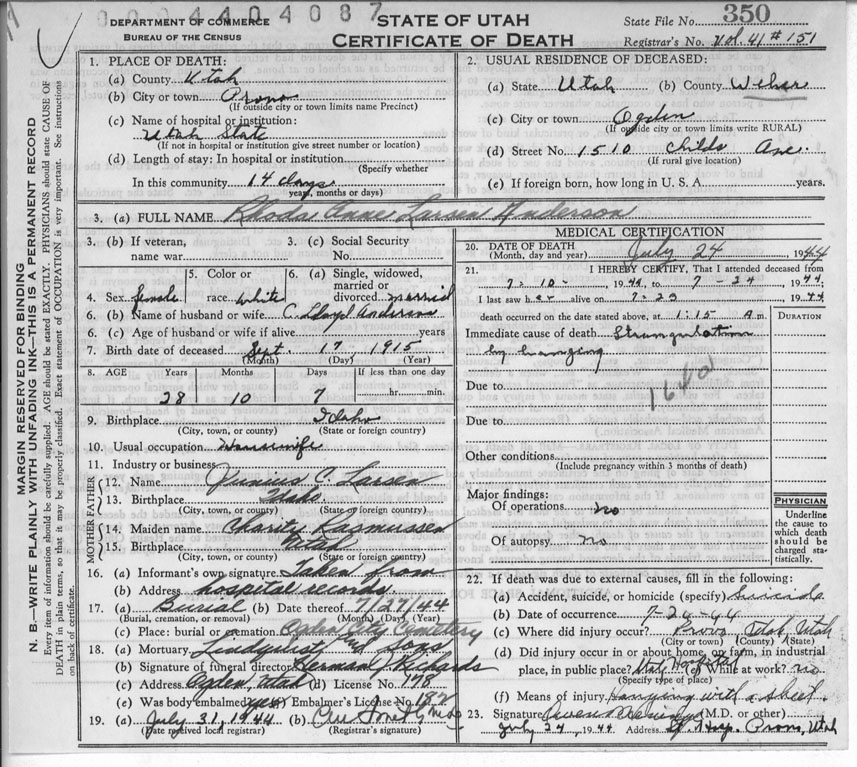 0004404087
DEPARTMENT OF COMMERCE
BUREAU OF THE CENSUS
STATE OF UTAH
CERTIFICATE OF DEATH
State File No. 350
Registrar's No. Vol 41 # 151
MARGIN RESERVED FOR BINDING
N. B.—WRITE PLAINLY WITH UNFADING INK—THIS IS A PERMANENT RECORD
Every item of information should be carefully supplied. AGE should be stated EXACTLY. PHYSICIANS should state CAUSE OF
DEATH in plain terms, so that it may be properly classified. Exact statement of OCCUPATION is very important. See instructions
on back of certificate.
1. PLACE OF DEATH:
(a) County Utah
(b) City or town Provo
(If outside city or town limits name Precinct)
(c) Name of hospital or institution:
Utah State
(If not in hospital or institution give street number or location)
(d) Length of stay: In hospital or institution
(Specify whether
In this community 14 days
years, months or days)
2. USUAL RESIDENCE OF DECEASED:
(a) State Utah (b) County Weber
(c) City or town Ogden
(If outside city or town limits write RURAL)
(d) Street No. 1510 Childs Ave.
(If rural give location)
(e) If foreign born, how long in U. S. A. years.
3. (a) FULL NAME Rhoda Anne Larsen Anderson
3. (b) If veteran, name war
3. (c) Social Security No.
4. Sex female
5. Color or race white
6. (a) Single, widowed, married or divorced married
6. (b) Name of husband or wife C. Lloyd Anderson
6. (c) Age of husband or wife if alive years
7. Birth date of deceased Sept. 17 1915
(Month) (Day) (Year)
8. AGE Years Months Days If less than one day
28 10 7 hr. min.
9. Birthplace Idaho
(City, town, or county) (State or foreign country)
10. Usual occupation Housewife
11. Industry or business
FATHER
12. Name Junius C. Larsen
13. Birthplace Idaho
(City, town, or county) (State or foreign country)
MOTHER
14. Maiden name Charity Rasmussen
15. Birthplace Utah
(City, town, or county) (State or foreign country)
16. (a) Informant's own signature Taken from
(b) Address hospital records
17. (a) Burial (b) Date thereof 7/27/44
(Burial, cremation, or removal) (Month) (Day) (Year)
(c) Place: burial or cremation Ogden City Cemetery
18. (a) Mortuary Lindquist & Sons
(b) Signature of funeral director Herman J. Richards
(c) Address Ogden, Utah (d) License No. 178
(e) Was body embalmed yes (f) Embalmer's License No. 182
19. (a) July 31, 1944 (b)
(Date received local registrar) (Registrar's signature)
MEDICAL CERTIFICATION
20. DATE OF DEATH July 24 1944
(Month, day and year)
21. I HEREBY CERTIFY, That I attended deceased from
7-10- 1944, to 7-24 1944.
I last saw her alive on 7-23 1944
death occurred on the date stated above, at 1:15 A m.
DURATION
Immediate cause of death Strangulation
by hanging
1640
Due to
Due to
Other conditions
(Include pregnancy within 3 months of death)
Major findings:
Of operations no
Of autopsy no
PHYSICIAN
Underline
the cause to
which death
should be
charged sta-
tistically.
22. If death was due to external causes, fill in the following:
(a) Accident, suicide, or homicide (specify) Suicide
(b) Date of occurrence 7-24-44
(c) Where did injury occur? Provo Utah, Utah
(City or town) (County) (State)
(d) Did injury occur in or about home, on farm, in industrial
place, in public place? Hospital (e) While at work? no
(Specify type of place)
(f) Means of injury hanging with a sheet.
23. Signature Owen (M.D. or other)
July 24, 1944 Address St. Hosp. Provo, Utah